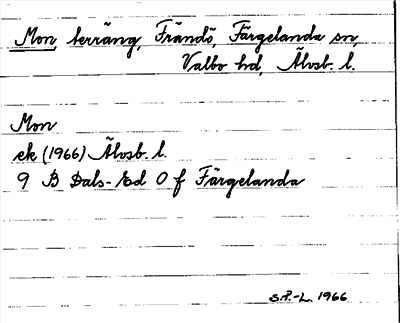 Mon, terräng, Frändö, Färgelanda sn,
Valbo hd, Älvsb. l.
Mon
ek (1966) Älvsb. l.
9 B Dals-Ed O f Färgelanda
S.P.-L. 1966